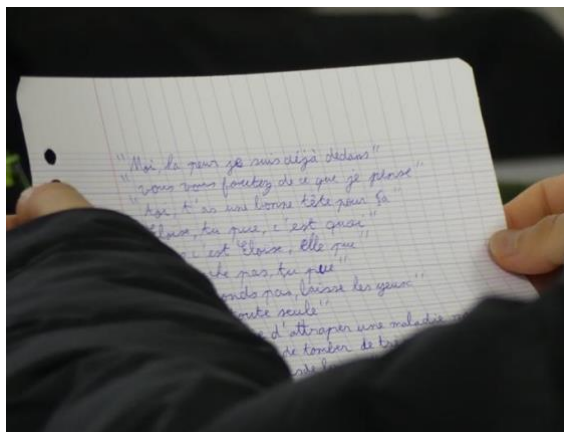 "Moi, la peur je suis déjà dedans"
"vous vous foutez de ce que je pense"
"toi, t'as une bonne tête pour ça"
Éloïse, tu pue, c'est quoi"
c'est Éloïse, elle pue"
pas, tu pue"
pas, baisse les yeux"
toute seule"
d'attraper une maladie
de tomber de